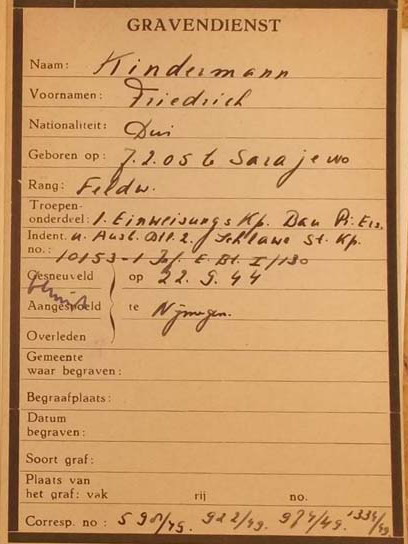 GRAVENDIENST
Naam: Kindermann
Voornamen: Friedrich
Nationaliteit: Dui
Geboren op: 7.2.05 te Sarajewo
Rang: Feldw.
Troepen-
onderdeel: 1. Einweisungs Kp. Bau Pi. Ers.
Indent. u. Ausb. Btl. 2. Schlawe St. Kp.
no.: 10153-1 Inf. E. Bt. I/130
Gesneuveld op 22.9.44
Aangespoeld te Nijmegen.
Overleden
Gemeente
waar begraven:
Begraafplaats:
Datum
begraven:
Soort graf:
Plaats van
het graf: vak rij no.
Corresp. no: 598/49. 922/49. 974/49. 1334/49